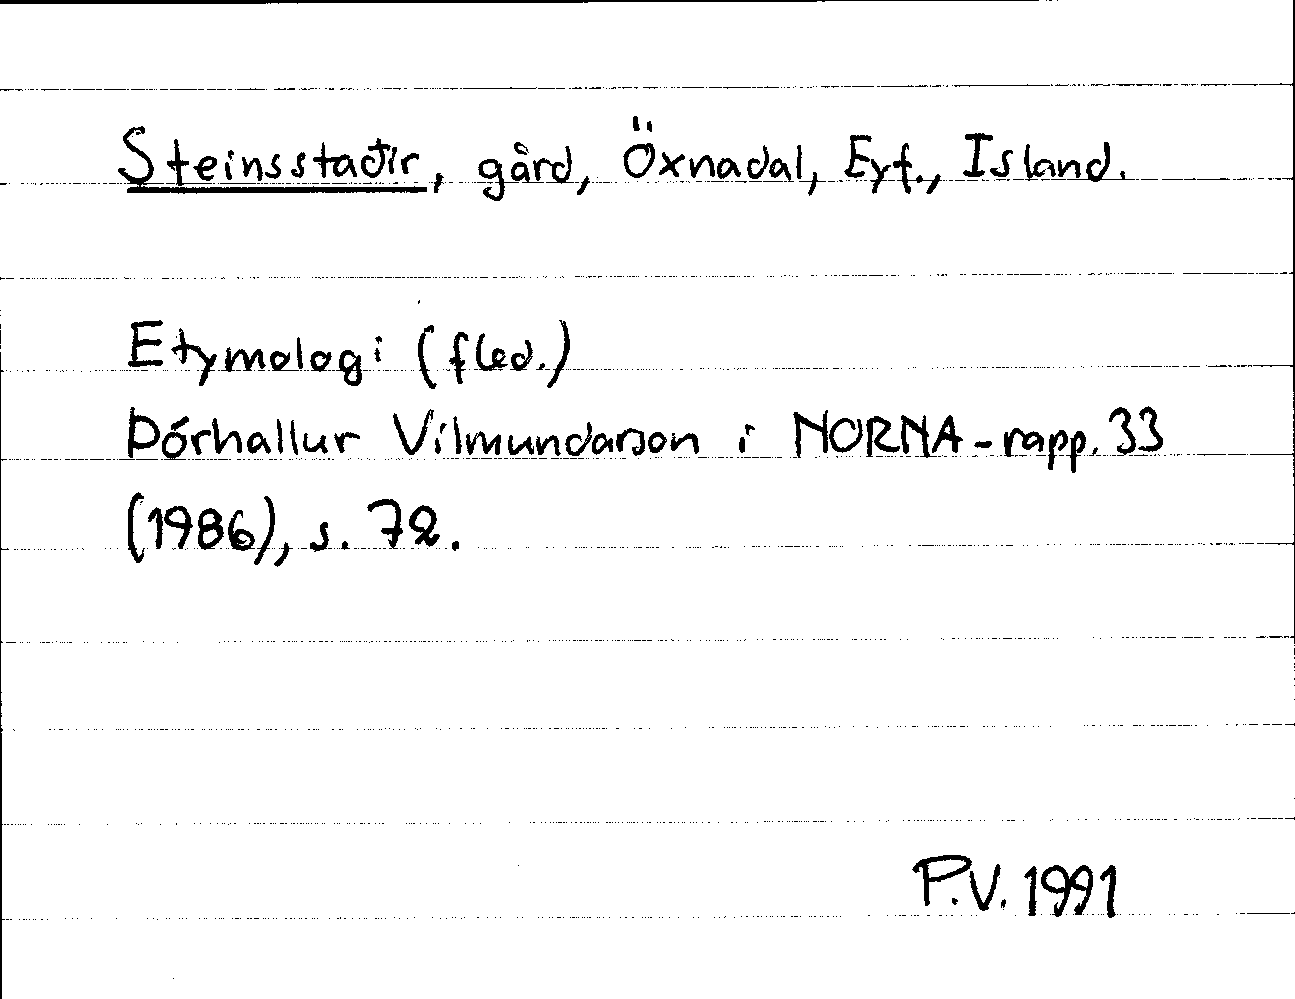 Steinsstaðir, gård, Öxnadal, Eyf., Island.
Etymologi (fled.)
Þórhallur Vilmundarson i NORNA-rapp. 33
(1986), s. 72.
P.V. 1991